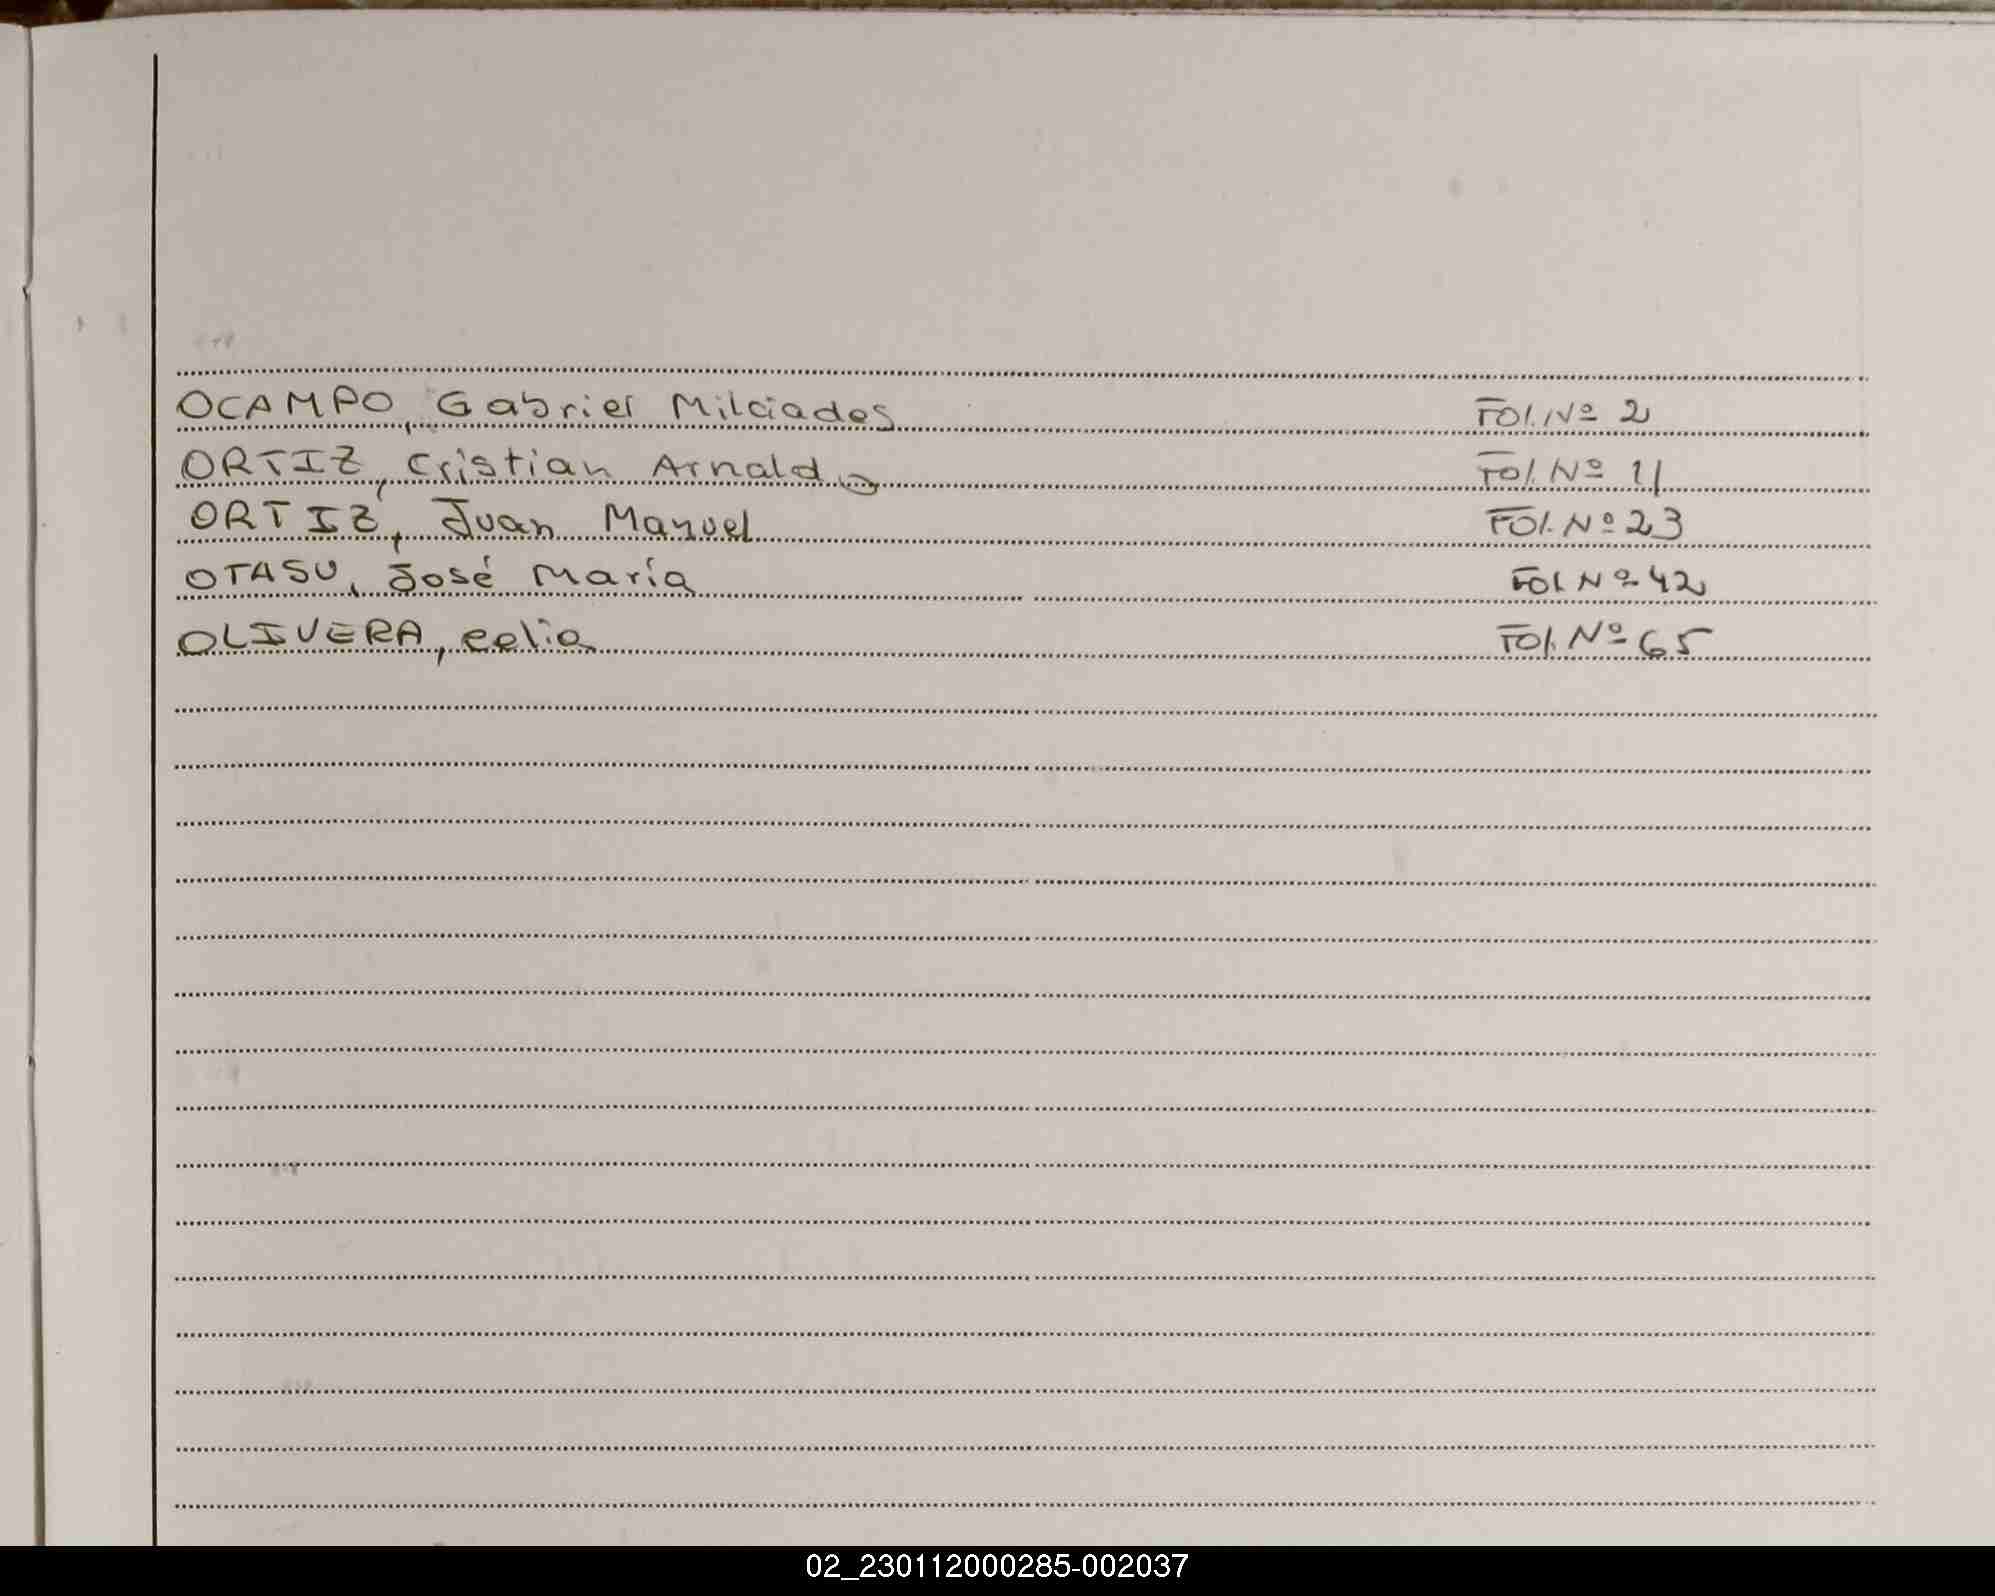 OCAMPO, Gabriel Milciades Fol. Nº 2
ORTIZ, Cristian Arnaldo Fol. Nº 11
ORTIZ, Juan Manuel Fol. Nº 23
OTASU, José María Fol Nº 42
OLIVERA, Celia Fol. Nº 65
02_230112000285-002037